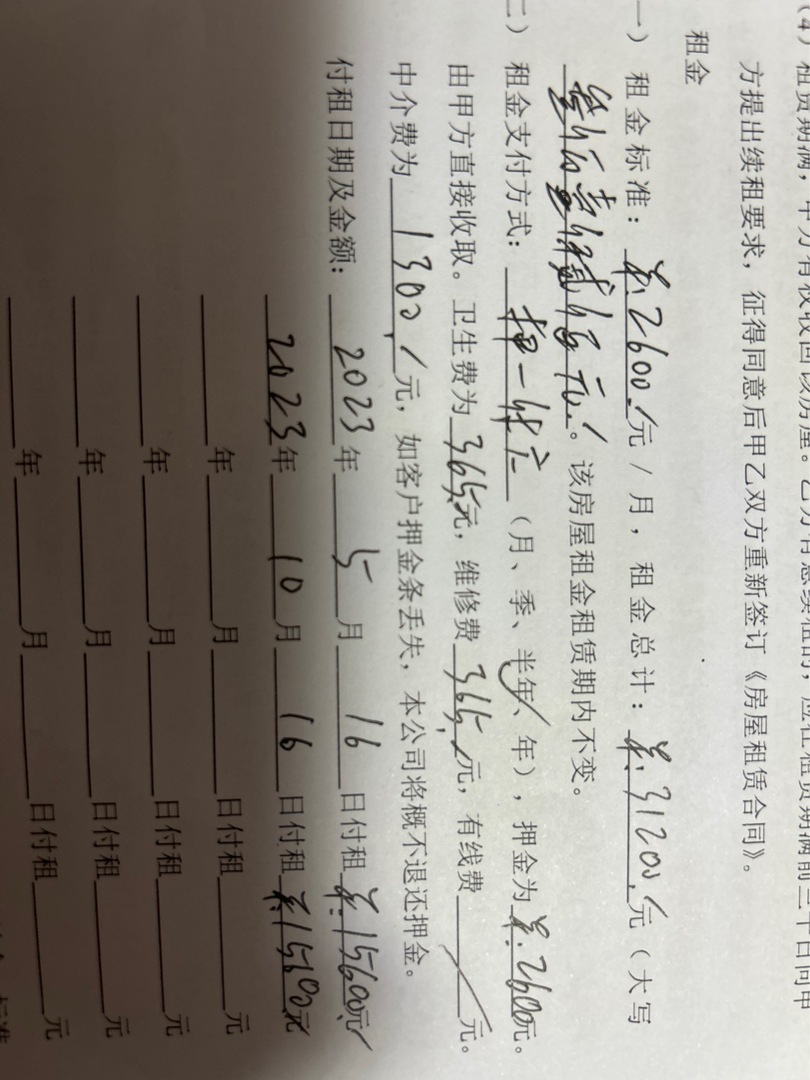 (4) 租赁期满，甲方有权收回该房屋。乙方有意续租的，应在租赁期满前三十日向甲
方提出续租要求，征得同意后甲乙双方重新签订《房屋租赁合同》。
租金
一) 租金标准：¥:2600.元/月，租金总计：¥:31200元（大写
叁万壹仟贰佰元。该房屋租金租赁期内不变。
二) 租金支付方式：押一付六（月、季、半年、年），押金为¥:2600元。
由甲方直接收取。卫生费为365元，维修费365元，有线费 元。
中介费为1300元，如客户押金条丢失，本公司将概不退还押金。
付租日期及金额：2023年5月16日付租¥:15600元
2023年10月16日付租¥:15600元
年 月 日付租 元
年 月 日付租 元
年 月 日付租 元
年 月 日付租 元